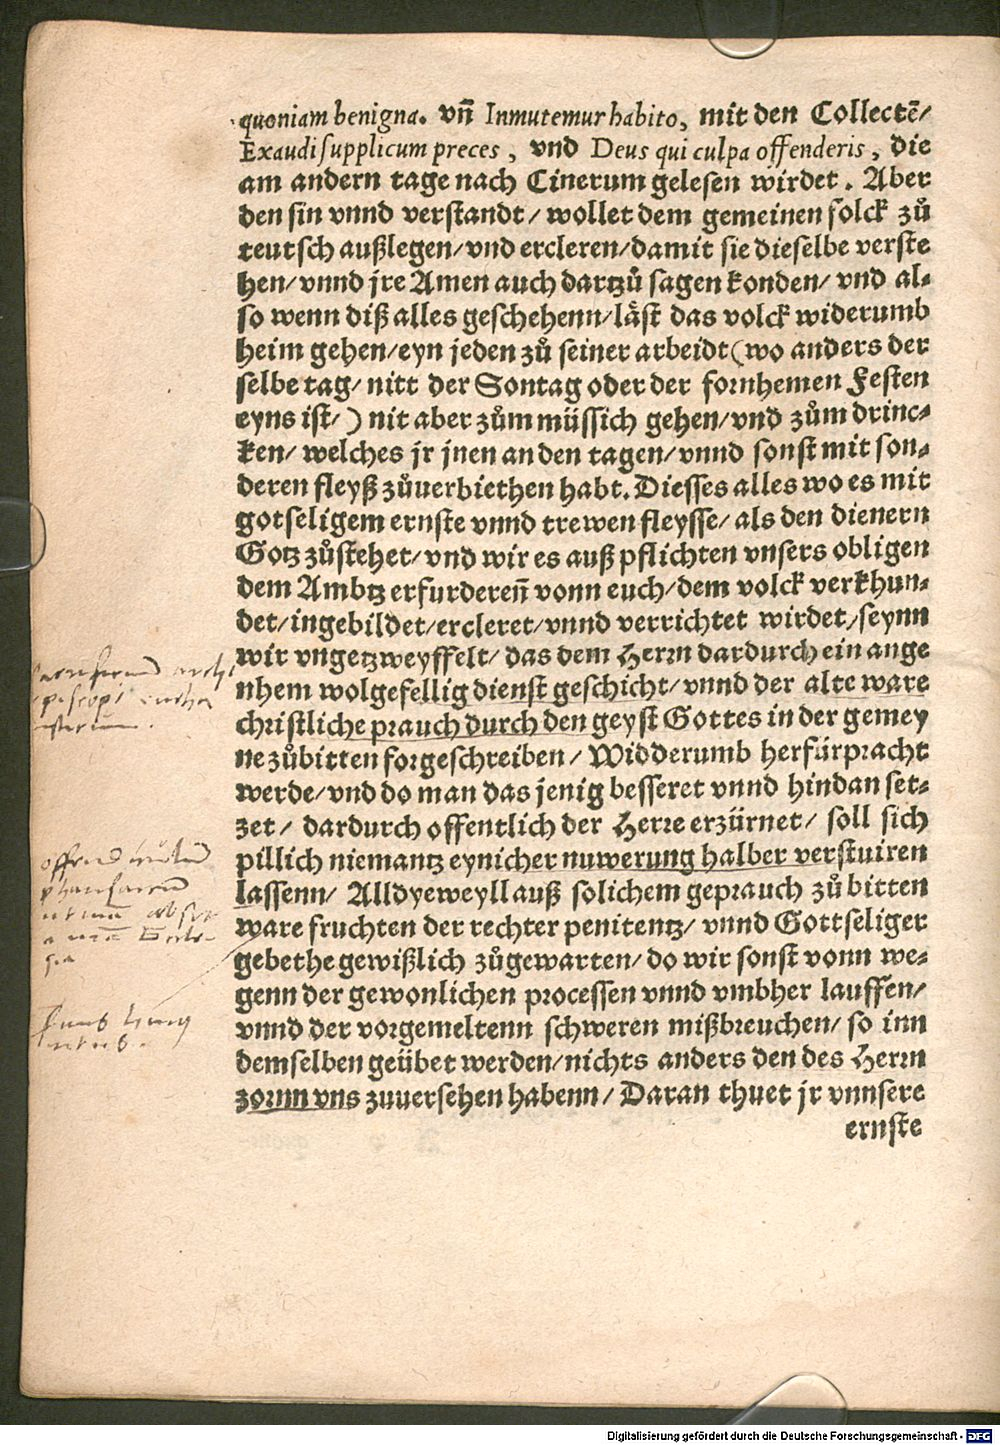 quoniam benigna. vñ Inmutemur habito, mit den Collectẽ/
Exaudi supplicum preces, vnd Deus qui culpa offenderis, die
am andern tage nach Cinerum gelesen wirdet. Aber
den sin vnnd verstandt/ wollet dem gemeinen folck zů
teutsch außlegen/vnd ercleren/damit sie dieselbe verste
hen/vnnd jre Amen auch dartzů sagen konden/ vnd al⸗
so wenn diß alles geschehenn/låst das volck widerumb
heim gehen/eyn jeden zů seiner arbeidt (wo anders der
selbe tag/ nitt der Sontag oder der fornhemen Festen
eyns ist/) nit aber zům müssich gehen/vnd zům drinc⸗
ken/ welches jr jnen an den tagen/vnnd sonst mit son⸗
deren fleyß zůuerbiethen habt. Diesses alles wo es mit
gotseligem ernste vnnd trewen fleysse/als den dienern
Gotz zůstehet/vnd wir es auß pflichten vnsers obligen
dem Ambtz erfurdereñ vonn euch/dem volck verkhun⸗
det/ingebildet/ercleret/vnnd verrichtet wirdet/seynn
wir vngetzweyffelt/das dem Herrn dardurch ein ange
nhem wolgefellig dienst geschicht/vnnd der alte ware
christliche prauch durch den geyst Gottes in der gemey
ne zůbitten forgeschreiben/ Widderumb herfürpracht
werde/vnd do man das jenig besseret vnnd hindan set⸗
zet/ dardurch offentlich der Herre erzürnet/ soll sich
pillich niemantz eynicher nuwerung halber verstuiren
lassenn/ Alldyeweyll auß solichem geprauch zů bitten
ware fruchten der rechter penitentz/ vnnd Gottseliger
gebethe gewißlich zůgewarten/do wir sonst vonn we⸗
genn der gewonlichen processen vnnd vmbher lauffen/
vnnd der vorgemeltenn schweren mißbreuchen/ so inn
demselben geübet werden/nichts anders den des Herrn
zornn vns zuuersehen habenn/ Daran thuet jr vnnsere
ernste
Digitalisierung gefördert durch die Deutsche Forschungsgemeinschaft - DFG